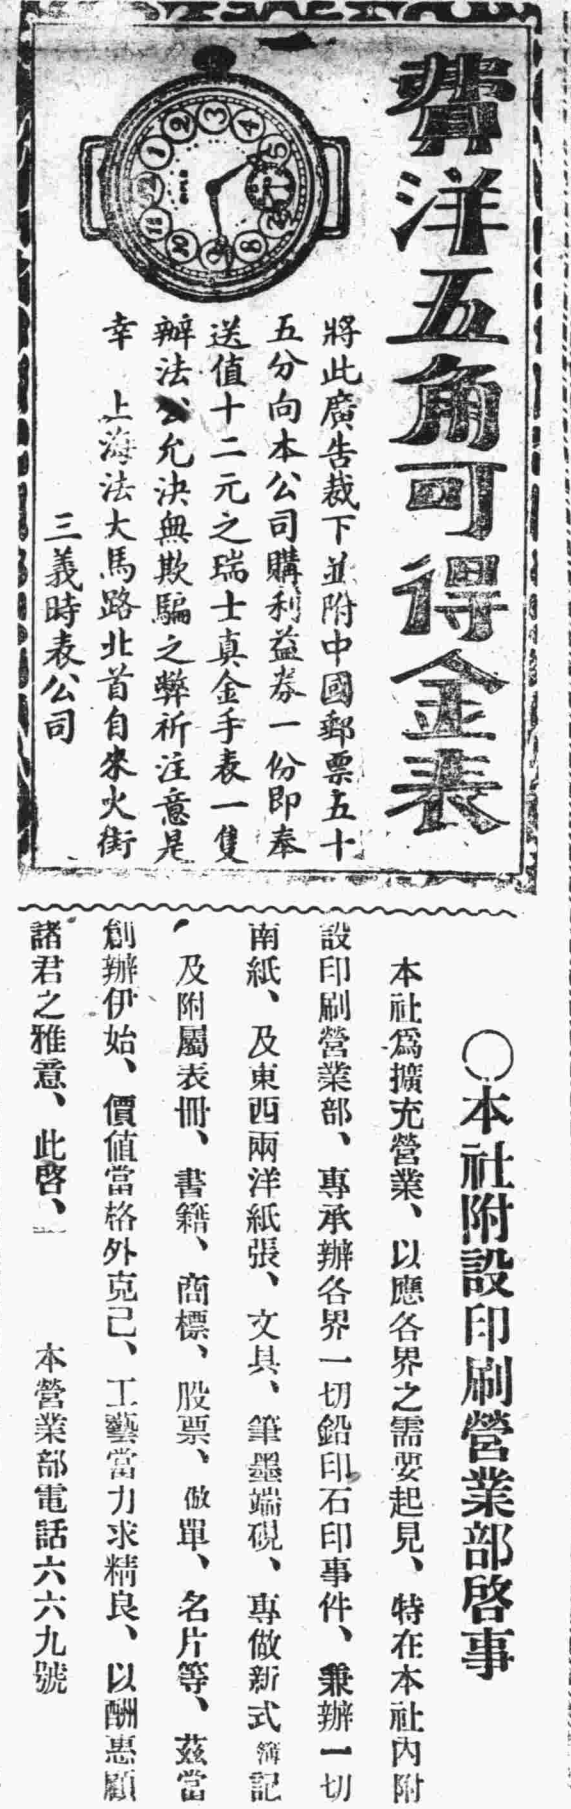 費洋五角可得金表
將此廣告裁下並附中國郵票五十
五分向本公司購利益券一份即奉
送值十二元之瑞士真金手表一隻
辦法公允決無欺騙之弊祈注意是
幸　上海法大馬路北首自來火街
三義時表公司
○本社附設印刷營業部啓事
本社爲擴充營業、以應各界之需要起見、特在本社內附
設印刷營業部、專承辦各界一切鉛印石印事件、兼辦一切
南紙、及東西兩洋紙張、文具、筆墨端硯、專做新式簿記
、及附屬表冊、書籍、商標、股票、倣單、名片等、茲當
創辦伊始、價値當格外克己、工藝當力求精良、以酬惠顧
諸君之雅意、此啓、
本營業部電話六六九號